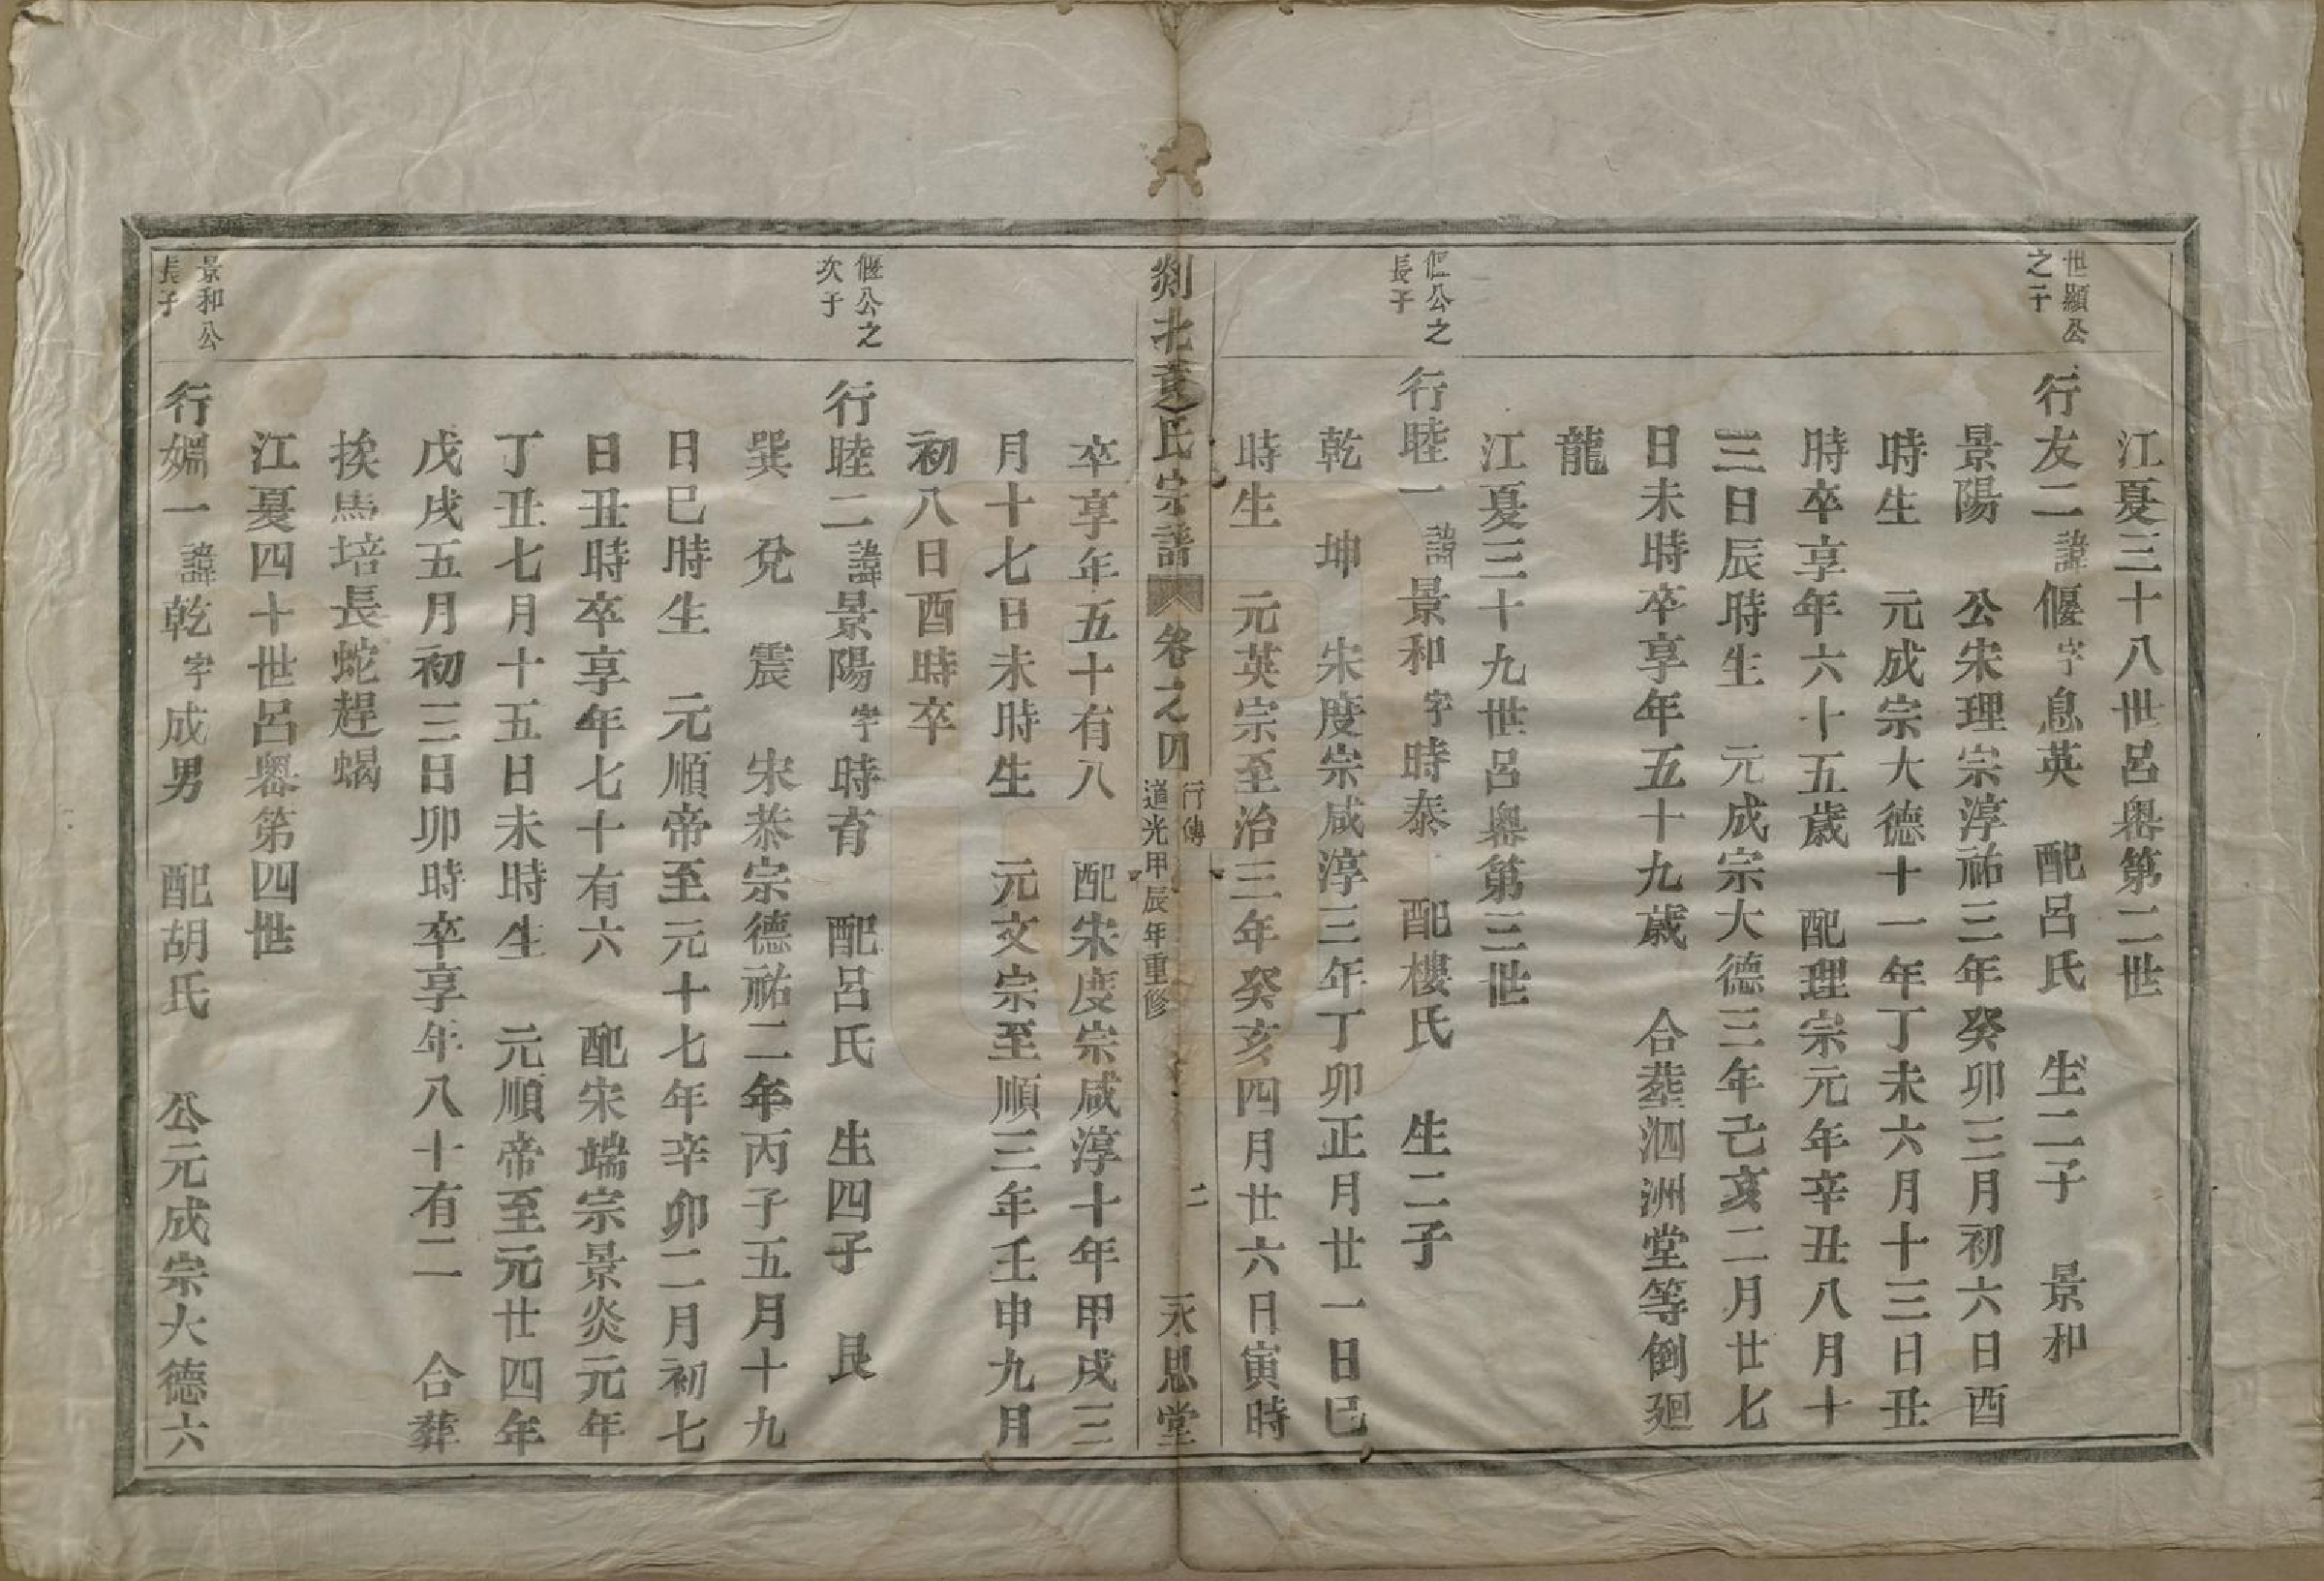 江夏三十八世呂嶴第二世
世顯公
之子
行友二諱偃字息英　配呂氏　生二子　景和
景陽　公宋理宗淳祐三年癸卯三月初六日酉
時生　元成宗大德十一年丁未六月十三日丑
時卒享年六十五歲　配理宗元年辛丑八月十
三日辰時生　元成宗大德三年己亥二月廿七
日未時卒享年五十九歲　合塟泗洲堂等倒廻
龍
江夏三十九世呂嶴第三世
偃公之
長子
行睦一諱景和字時泰　配樓氏　生二子
乾　坤　宋度宗咸淳三年丁卯正月廿一日巳
時生　元英宗至治三年癸亥四月廿六日寅時
剡北黃氏宗譜　卷之四　行傳
道光甲辰年重修
二
永思堂
卒享年五十有八　配宋度宗咸淳十年甲戌三
月十七日未時生　元文宗至順三年壬申九月
初八日酉時卒
偃公之
次子
行睦二諱景陽字時育　配呂氏　生四子　艮
巽　兌　震　宋恭宗德祐二年丙子五月十九
日巳時生　元順帝至元十七年辛卯二月初七
日丑時卒享年七十有六　配宋端宗景炎元年
丁丑七月十五日未時生　元順帝至元廿四年
戊戌五月初三日卯時卒享年八十有二　合葬
挨馬培長蛇趕蝎
江夏四十世呂嶴第四世
景和公
長子
行婣一諱乾字成男　配胡氏　公元成宗大德六